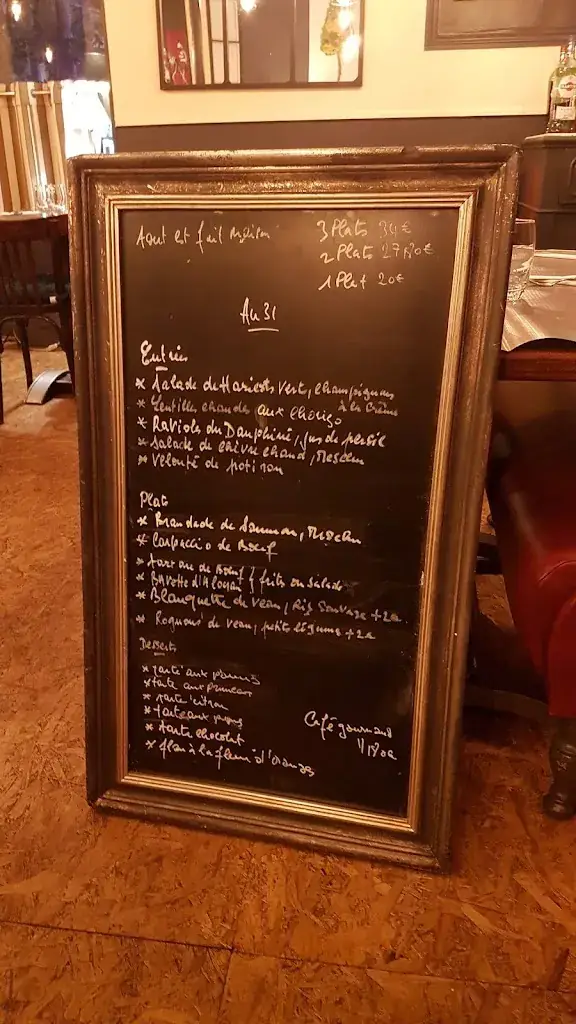 Tout est fait maison
3 Plats 34€
2 Plats 27,80€
1 Plat 20€
Au 31
Entrées
* Salade de Haricots Vert, champignons
à la Crème
* Lentilles chaudes aux Chorizo
* Ravioles du Dauphiné, jus de persil
* Salade de chèvre chaud, Mesclun
* Velouté de potiron
Plats
* Brandade de Saumon, Mesclun
* Carpaccio de Bœuf
* Tartare de Bœuf
* Bavette d'Aloyau } frites ou Salade
* Blanquette de veau, Riz Sauvage +2€
* Rognons de veau, petits légumes +2€
Desserts
* tarte aux pommes
* tarte aux pruneaux
* tarte citron
* tarte aux
* tarte chocolat
* flan à la fleur d'oranger
Café gourmand